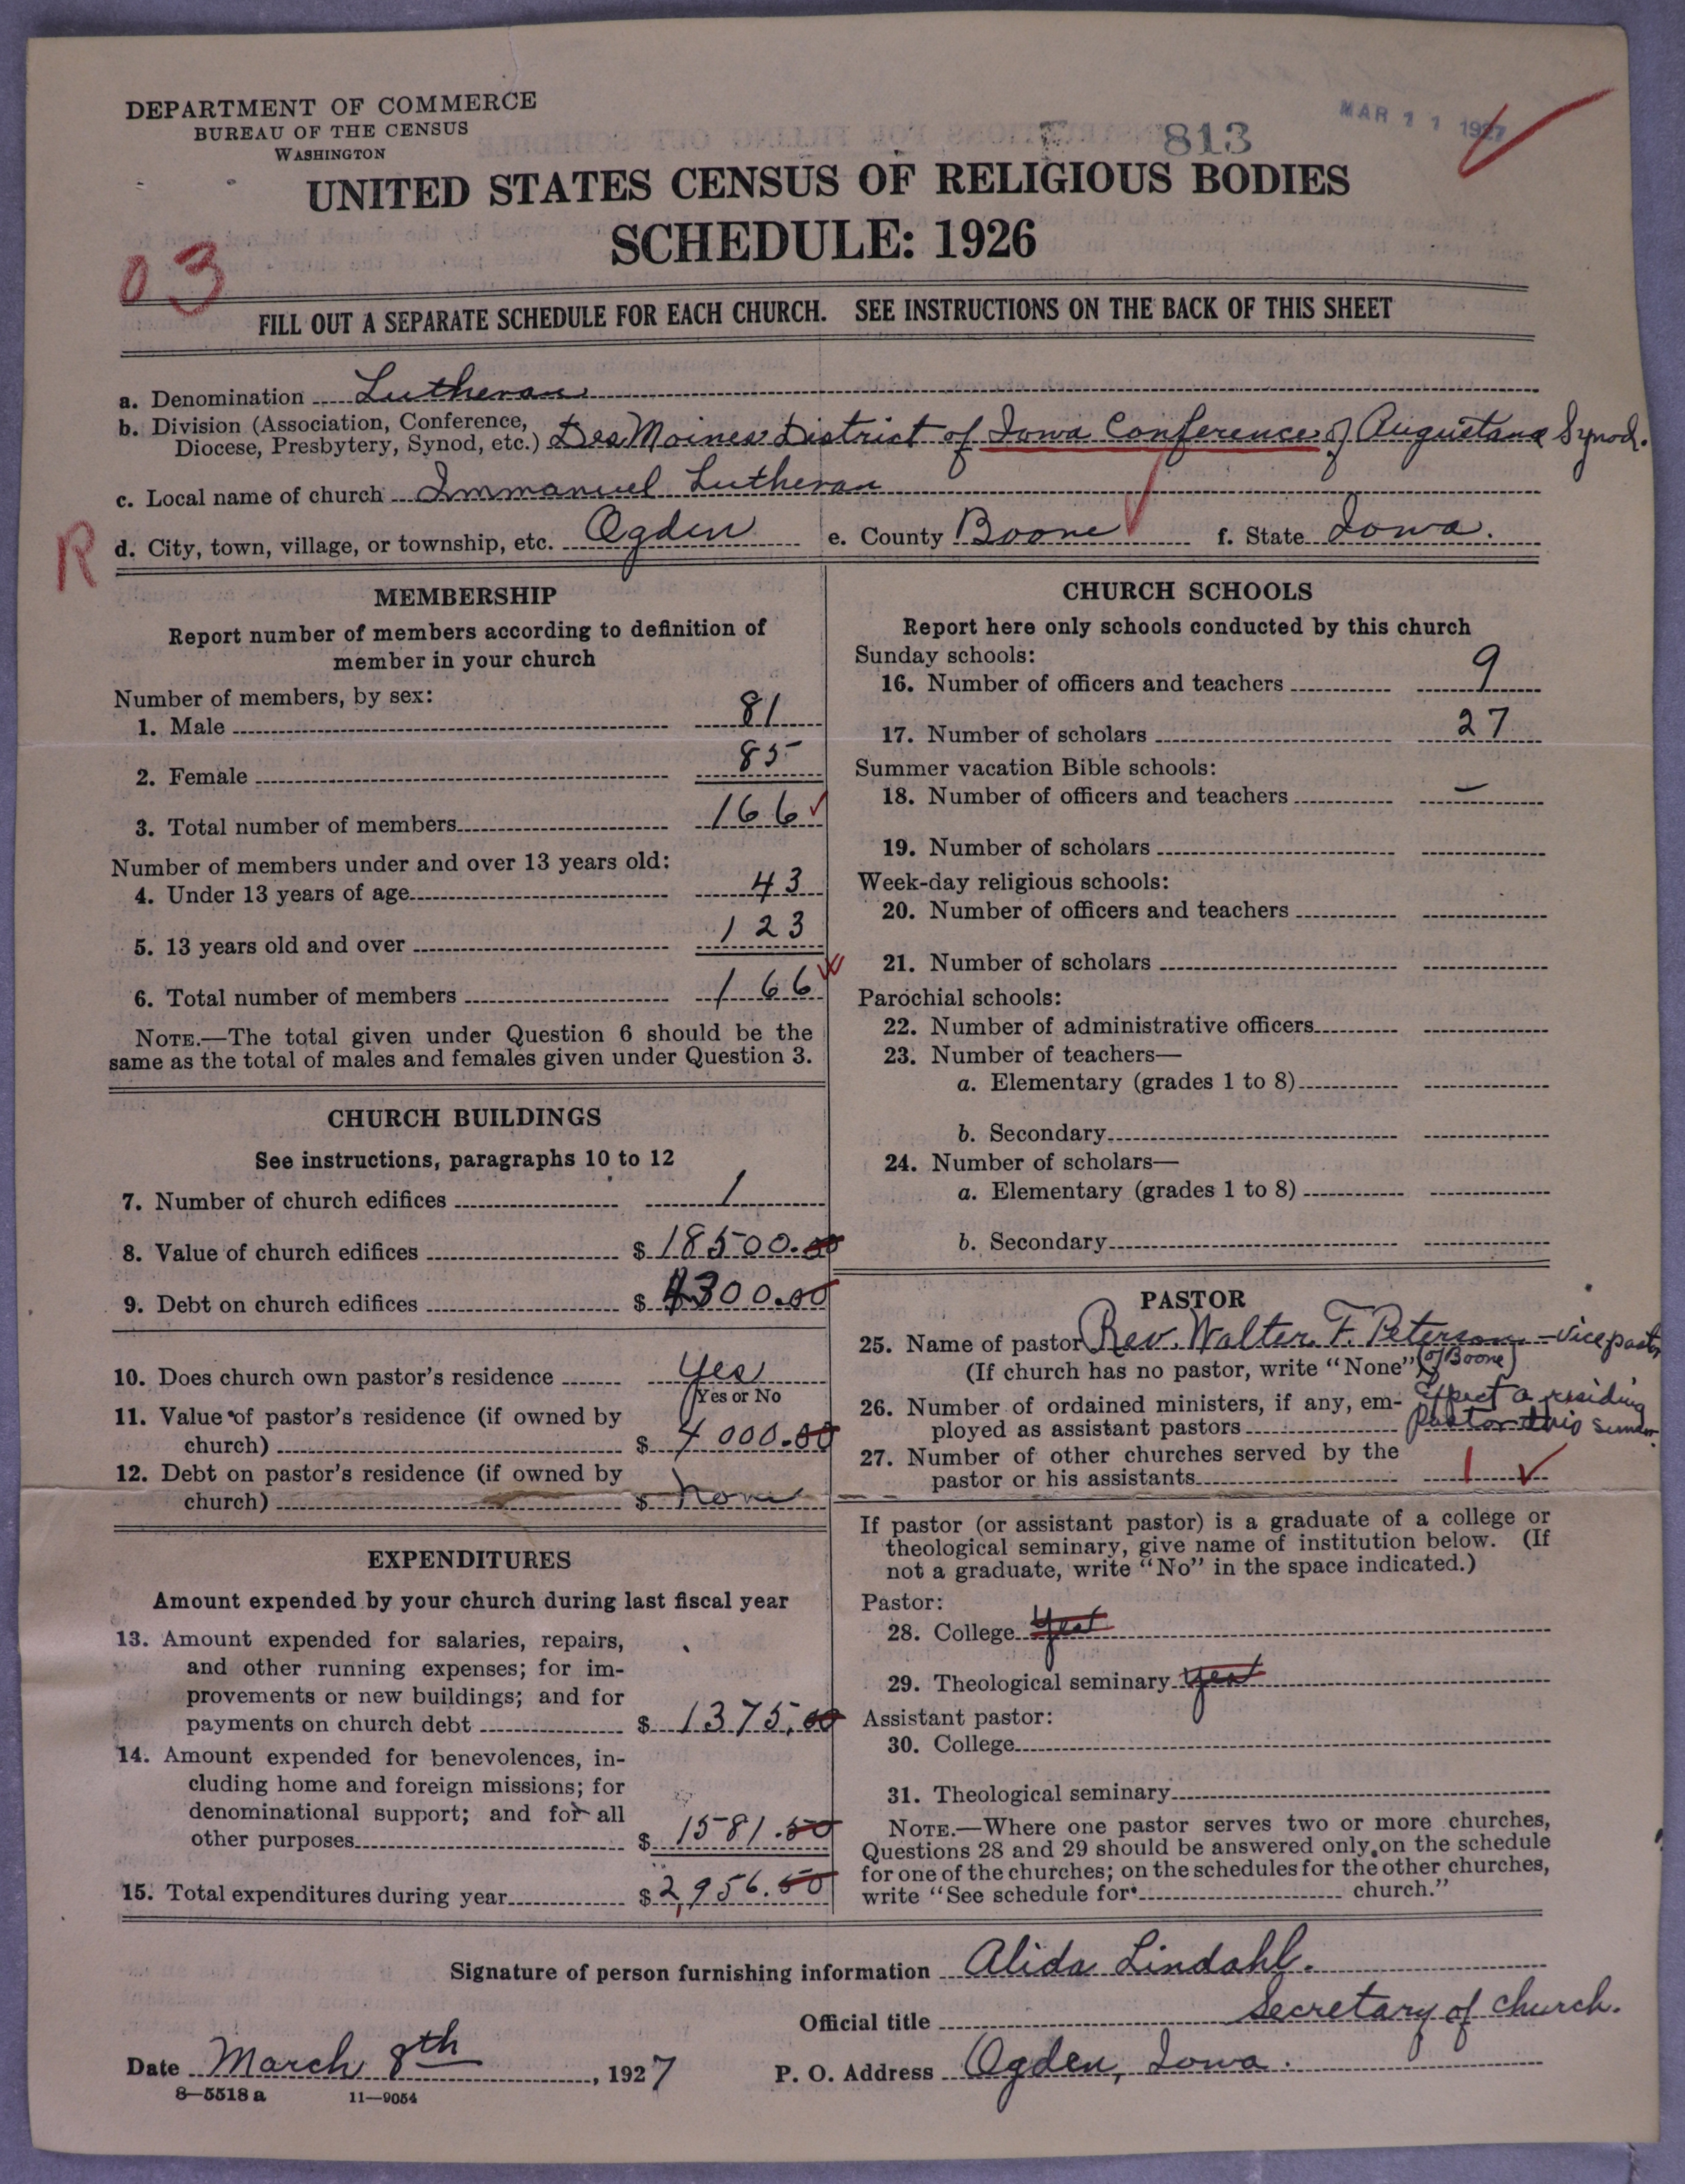 DEPARTMENT OF COMMERCE
BUREAU OF THE CENSUS
WASHINGTON
813
MAR 11 1927
UNITED STATES CENSUS OF RELIGIOUS BODIES
SCHEDULE: 1926
03
FILL OUT A SEPARATE SCHEDULE FOR EACH CHURCH. SEE INSTRUCTIONS ON THE BACK OF THIS SHEET
a. Denomination Lutheran
b. Division (Association, Conference,
Diocese, Presbytery, Synod, etc.) Des Moines District of Iowa Conference of Augustana Synod.
c. Local name of church Immanuel Lutheran
R
d. City, town, village, or township, etc. Ogden e. County Boone f. State Iowa.
MEMBERSHIP
Report number of members according to definition of
member in your church
Number of members, by sex:
1. Male 81
2. Female 85
3. Total number of members 166
Number of members under and over 13 years old:
4. Under 13 years of age 43
5. 13 years old and over 123
6. Total number of members 166
NOTE.—The total given under Question 6 should be the
same as the total of males and females given under Question 3.
CHURCH BUILDINGS
See instructions, paragraphs 10 to 12
7. Number of church edifices 1
8. Value of church edifices $ 18500.00
9. Debt on church edifices $ 4300.00
10. Does church own pastor's residence Yes
(Yes or No
11. Value of pastor's residence (if owned by
church) $ 4000.00
12. Debt on pastor's residence (if owned by
church) $ none
EXPENDITURES
Amount expended by your church during last fiscal year
13. Amount expended for salaries, repairs,
and other running expenses; for im-
provements or new buildings; and for
payments on church debt $ 1375.00
14. Amount expended for benevolences, in-
cluding home and foreign missions; for
denominational support; and for all
other purposes $ 1581.50
15. Total expenditures during year $ 2,956.50
CHURCH SCHOOLS
Report here only schools conducted by this church
Sunday schools:
16. Number of officers and teachers 9
17. Number of scholars 27
Summer vacation Bible schools:
18. Number of officers and teachers —
19. Number of scholars
Week-day religious schools:
20. Number of officers and teachers
21. Number of scholars
Parochial schools:
22. Number of administrative officers
23. Number of teachers—
a. Elementary (grades 1 to 8)
b. Secondary
24. Number of scholars—
a. Elementary (grades 1 to 8)
b. Secondary
PASTOR
25. Name of pastor Rev. Walter F. Peterson – vice pastor
(If church has no pastor, write "None") (of Boone)
26. Number of ordained ministers, if any, em- Expect a residing
ployed as assistant pastors pastor this summer.
27. Number of other churches served by the
pastor or his assistants 1
If pastor (or assistant pastor) is a graduate of a college or
theological seminary, give name of institution below. (If
not a graduate, write "No" in the space indicated.)
Pastor:
28. College Yes
29. Theological seminary Yes
Assistant pastor:
30. College
31. Theological seminary
NOTE.—Where one pastor serves two or more churches,
Questions 28 and 29 should be answered only on the schedule
for one of the churches; on the schedules for the other churches,
write "See schedule for church."
Signature of person furnishing information Alida Lindahl.
Official title Secretary of church.
Date March 8th, 1927 P. O. Address Ogden, Iowa.
8—5518 a 11—9054